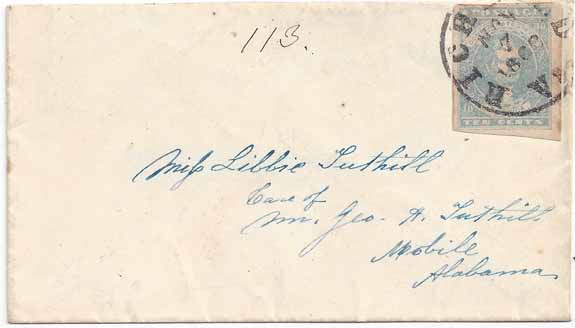 113.
RICHMOND
NOV
7
186
VA
TEN CENTS
Miss Libbie Tuthill
Care of
Mr. Geo. A. Tuthill
Mobile
Alabama